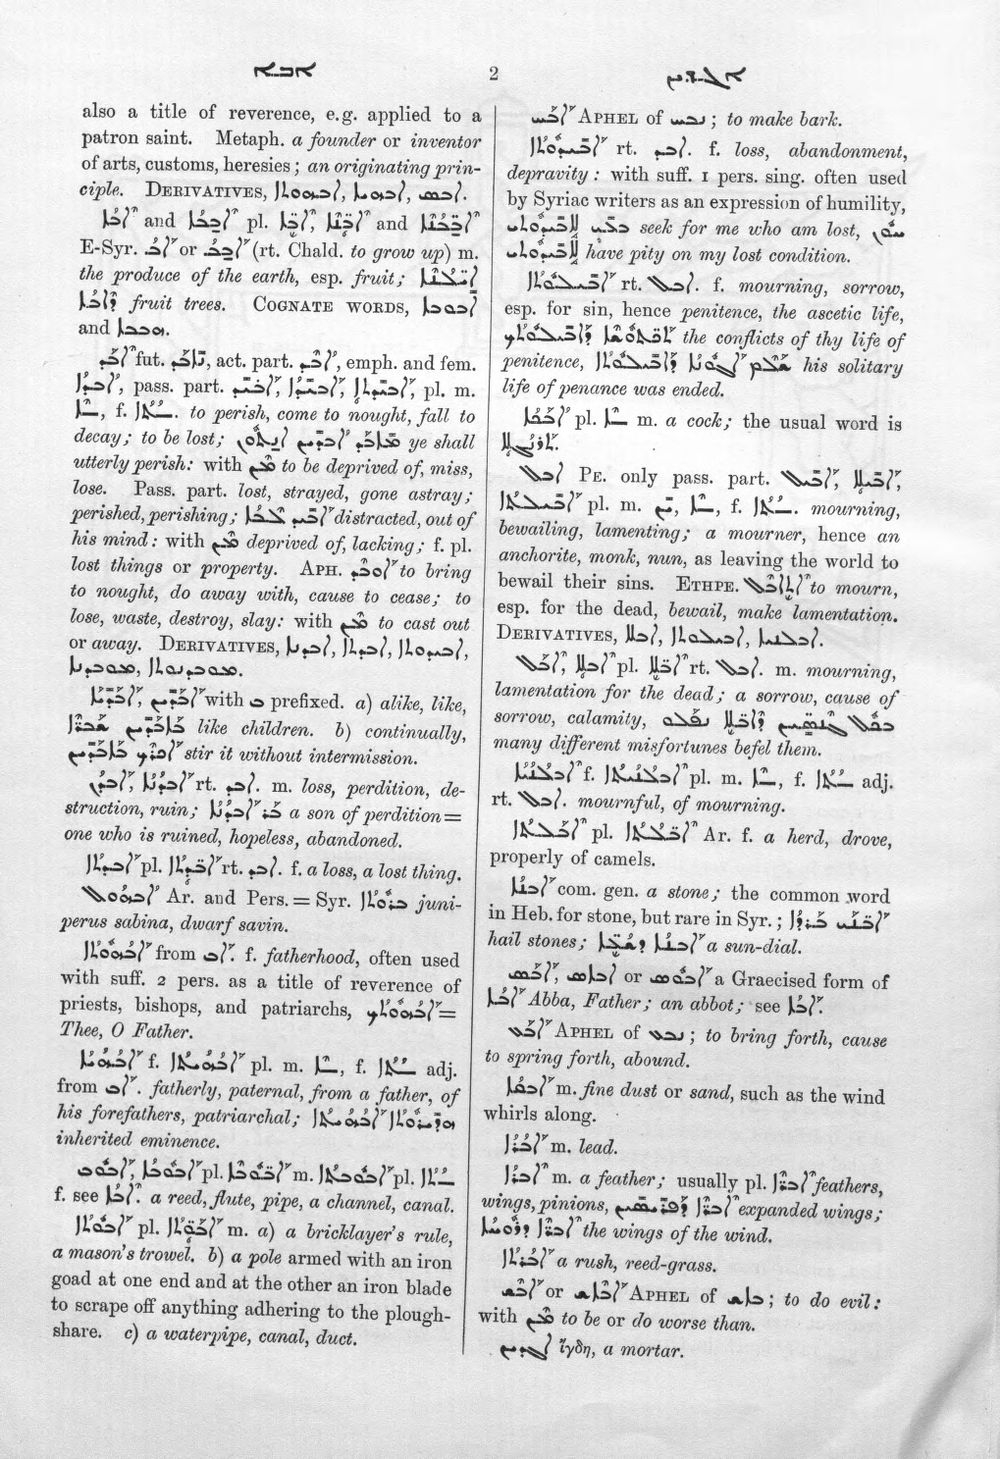 ܐܒܐ 2 ܐܓܕܝܢ
also a title of reverence, e.g. applied to a
patron saint. Metaph. a founder or inventor
of arts, customs, heresies; an originating prin-
ciple. DERIVATIVES, ܐܒܗܘܬܐ, ܐܒܘܬܐ, ܐܒܣ.
ܐܒܐ and ܐܒܒܐ pl. ܐܒܐ, ܐܒܢܐ and ܐܒܒܢܐ
E-Syr. ܐܒ or ܐܒܒ (rt. Chald. to grow up) m.
the produce of the earth, esp. fruit;
fruit trees. COGNATE WORDS, ܐܒܘܒܐ
and ܗܒܒܐ.
ܐܒܕ fut. ܢܐܒܕ, act. part. ܐܒܕ, emph. and fem.
ܐܒܕܐ, pass. part. ܐܒܝܕ, ܐܒܝܕܐ, ܐܒܝܕܬܐ, pl. m.
f. to perish, come to nought, fall to
decay; to be lost; ye shall
utterly perish: with ܡܢ to be deprived of, miss,
lose. Pass. part. lost, strayed, gone astray;
perished, perishing; ܐܒܝܕ ܠܒܐ distracted, out of
his mind: with ܡܢ deprived of, lacking; f. pl.
lost things or property. APH. ܐܘܒܕ to bring
to nought, do away with, cause to cease; to
lose, waste, destroy, slay: with ܡܢ to cast out
or away. DERIVATIVES, ܐܒܕܢܐ, ܐܒܕܬܐ, ܐܒܝܕܘܬܐ,
ܡܘܒܕܢܐ, ܡܘܒܕܢܘܬܐ.
with ܒ prefixed. a) alike, like,
like children. b) continually,
stir it without intermission.
ܐܒܕܢ, ܐܒܕܢܐ rt. ܐܒܕ. m. loss, perdition, de-
struction, ruin; ܒܪ ܐܒܕܢܐ a son of perdition=
one who is ruined, hopeless, abandoned.
ܐܒܕܬܐ pl. ܐܒܕܬܐ rt. ܐܒܕ. f. a loss, a lost thing.
ܐܒܗܘܠ Ar. and Pers. = Syr. ܒܪܘܬܐ juni-
perus sabina, dwarf savin.
ܐܒܗܘܬܐ from ܐܒ. f. fatherhood, often used
with suff. 2 pers. as a title of reverence of
priests, bishops, and patriarchs, ܐܒܗܘܬܟ=
Thee, O Father.
ܐܒܗܝܐ f. ܐܒܗܝܬܐ pl. m. f. adj.
from ܐܒ. fatherly, paternal, from a father, of
his forefathers, patriarchal;
inherited eminence.
ܐܒܘܒ, ܐܒܘܒܐ pl. ܐܒܘܒܐ m. ܐܒܘܒܬܐ pl.
f. see ܐܒܐ. a reed, flute, pipe, a channel, canal.
ܐܒܘܬܐ pl. m. a) a bricklayer's rule,
a mason's trowel. b) a pole armed with an iron
goad at one end and at the other an iron blade
to scrape off anything adhering to the plough-
share. c) a waterpipe, canal, duct.
ܐܒܚ APHEL of ܢܒܚ; to make bark.
ܐܒܝܕܘܬܐ rt. ܐܒܕ. f. loss, abandonment,
depravity: with suff. 1 pers. sing. often used
by Syriac writers as an expression of humility,
ܒܥܝ ܠܐܒܝܕܘܬܝ seek for me who am lost, ܚܘܣ
ܠܐܒܝܕܘܬܝ have pity on my lost condition.
ܐܒܝܠܘܬܐ rt. ܐܒܠ. f. mourning, sorrow,
esp. for sin, hence penitence, the ascetic life,
the conflicts of thy life of
penitence, his solitary
life of penance was ended.
pl. m. a cock; the usual word is
ܬܪܢܓܠܐ.
ܐܒܠ PE. only pass. part. ܐܒܝܠ, ܐܒܝܠܐ,
ܐܒܝܠܬܐ pl. m. f. mourning,
bewailing, lamenting; a mourner, hence an
anchorite, monk, nun, as leaving the world to
bewail their sins. ETHPE. ܐܬܐܒܠ to mourn,
esp. for the dead, bewail, make lamentation.
DERIVATIVES, ܐܒܠܐ, ܐܒܝܠܘܬܐ, ܐܒܠܢܝܐ.
ܐܒܠ, ܐܒܠܐ pl. ܐܒܠܐ rt. ܐܒܠ. m. mourning,
lamentation for the dead; a sorrow, cause of
sorrow, calamity,
many different misfortunes befel them.
ܐܒܠܢܝܐ f. ܐܒܠܢܝܬܐ pl. m. f. adj.
rt. ܐܒܠ. mournful, of mourning.
ܐܒܠܬܐ pl. ܐܒܠܬܐ Ar. f. a herd, drove,
properly of camels.
ܐܒܢܐ com. gen. a stone; the common word
in Heb. for stone, but rare in Syr.; ܐܒܢܝ ܒܪܕܐ
hail stones; a sun-dial.
ܐܒܣ, ܐܒܐܣ or ܐܒܘܣ a Graecised form of
ܐܒܐ Abba, Father; an abbot; see ܐܒܐ.
ܐܒܥ APHEL of ܢܒܥ; to bring forth, cause
to spring forth, abound.
ܐܒܩܐ m. fine dust or sand, such as the wind
whirls along.
ܐܒܪܐ m. lead.
ܐܒܪܐ m. a feather; usually pl. ܐܒܪܐ feathers,
wings, pinions, expanded wings;
ܐܒܪܐ ܕܪܘܚܐ the wings of the wind.
ܐܒܪܬܐ a rush, reed-grass.
ܐܒܫ or ܐܒܐܫ APHEL of ܒܐܫ; to do evil:
with ܡܢ to be or do worse than.
ܐܓܕܝܢ ἴγδη, a mortar.